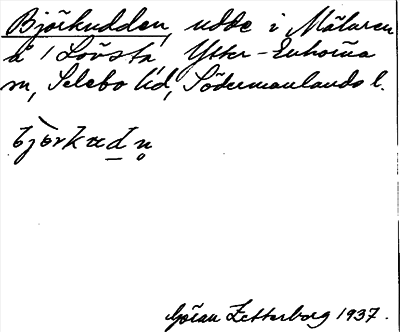 Björkudden, udde i Mälaren
å 1 Lövsta, Ytter-Enhörna
sn, Selebo hd, Södermanlands l.
bjò̱rkud̠n̥
Göran Zetterborg 1937.